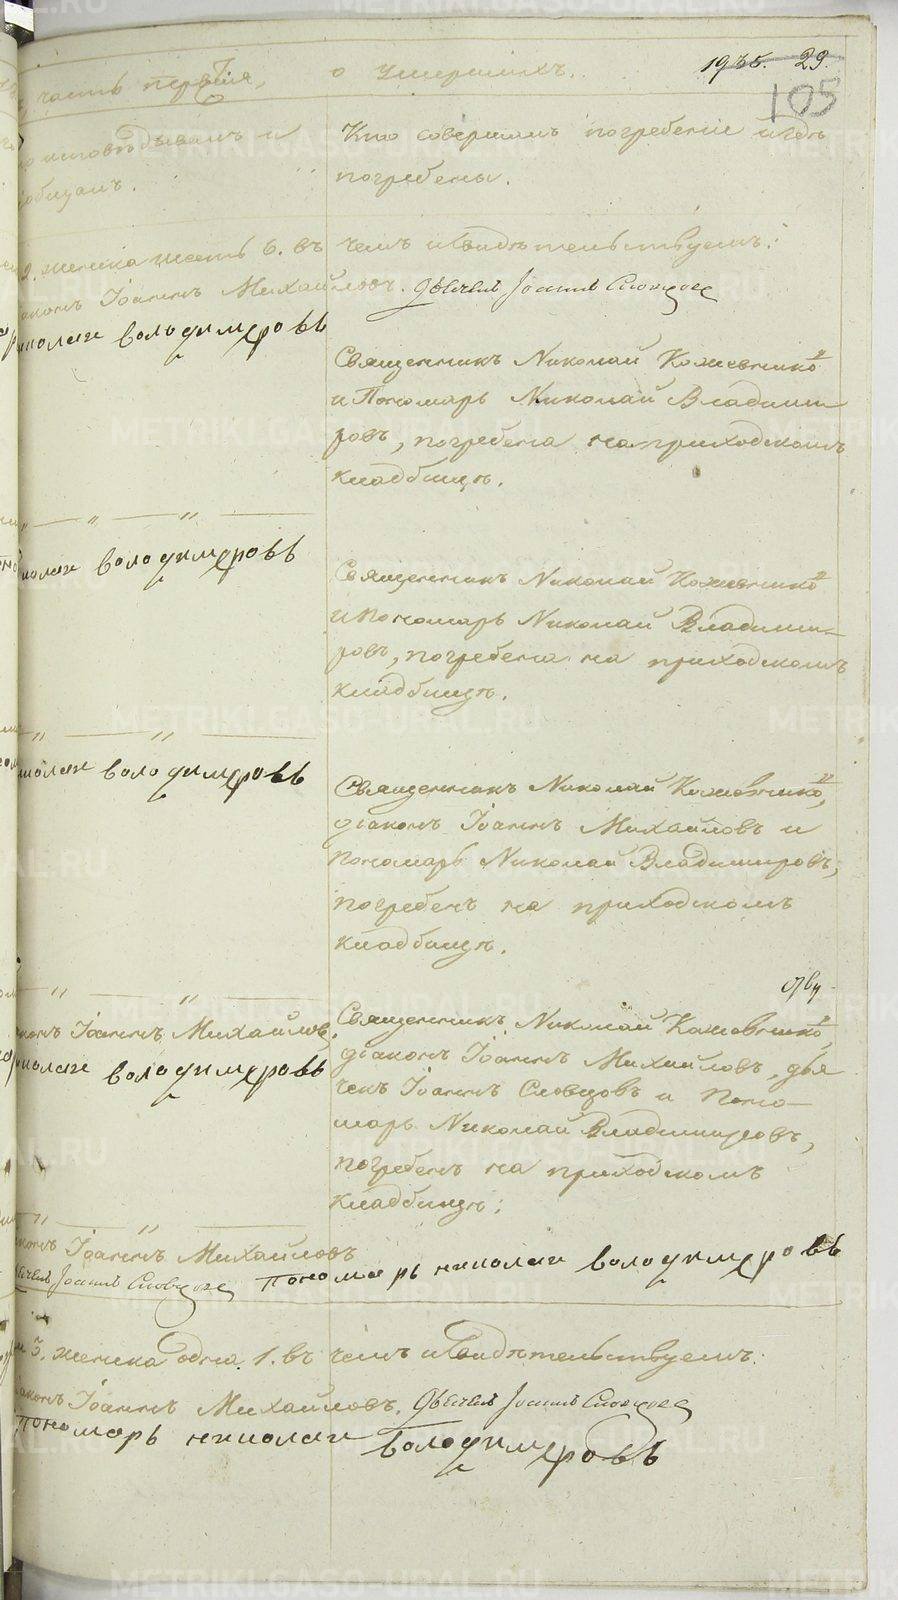 часть первая, о умершихъ. 1935. 29.
105
исповѣдывалъ и
Кто совершалъ погребеніе и гдѣ
погребены.
женска шесть 6. въ чемъ и свидѣтельствуемъ:
Іоаннъ Михайловъ. Дьячекъ Іоаннъ Словцовъ
николаи володимеровъ
Священникъ Николай Кожевнико
и Пономарь Николай Владими
ровъ, погребена на приходскомъ
кладбищѣ.
володимеровъ
Священникъ Николай Кожевнико
и Пономарь Николай Владими–
ровъ, погребена на приходскомъ
кладбищѣ.
володимеровъ
Священникъ Николай Кожевнико,
діаконъ Іоаннъ Михайловъ и
Пономарь Николай Владимировъ,
погребенъ на приходскомъ
кладбищѣ.
Іоаннъ Михайловъ
николаи володимеровъ
Священникъ Николай Кожевнико,
діаконъ Іоаннъ Михайловъ, дья
чекъ Іоаннъ Словцовъ и Поно–
марь Николай Владимировъ,
погребенъ на приходскомъ
кладбищѣ;
Іоаннъ Михайловъ
Іоаннъ Словцовъ Пономарь николаи володимеровъ
3. женска одна 1. въ чемъ и свидѣтельствуемъ:
Іоаннъ Михайловъ. Дьячекъ Іоаннъ Словцовъ
Пономарь николаи володимеровъ
METRIKI.GASO-URAL.RU